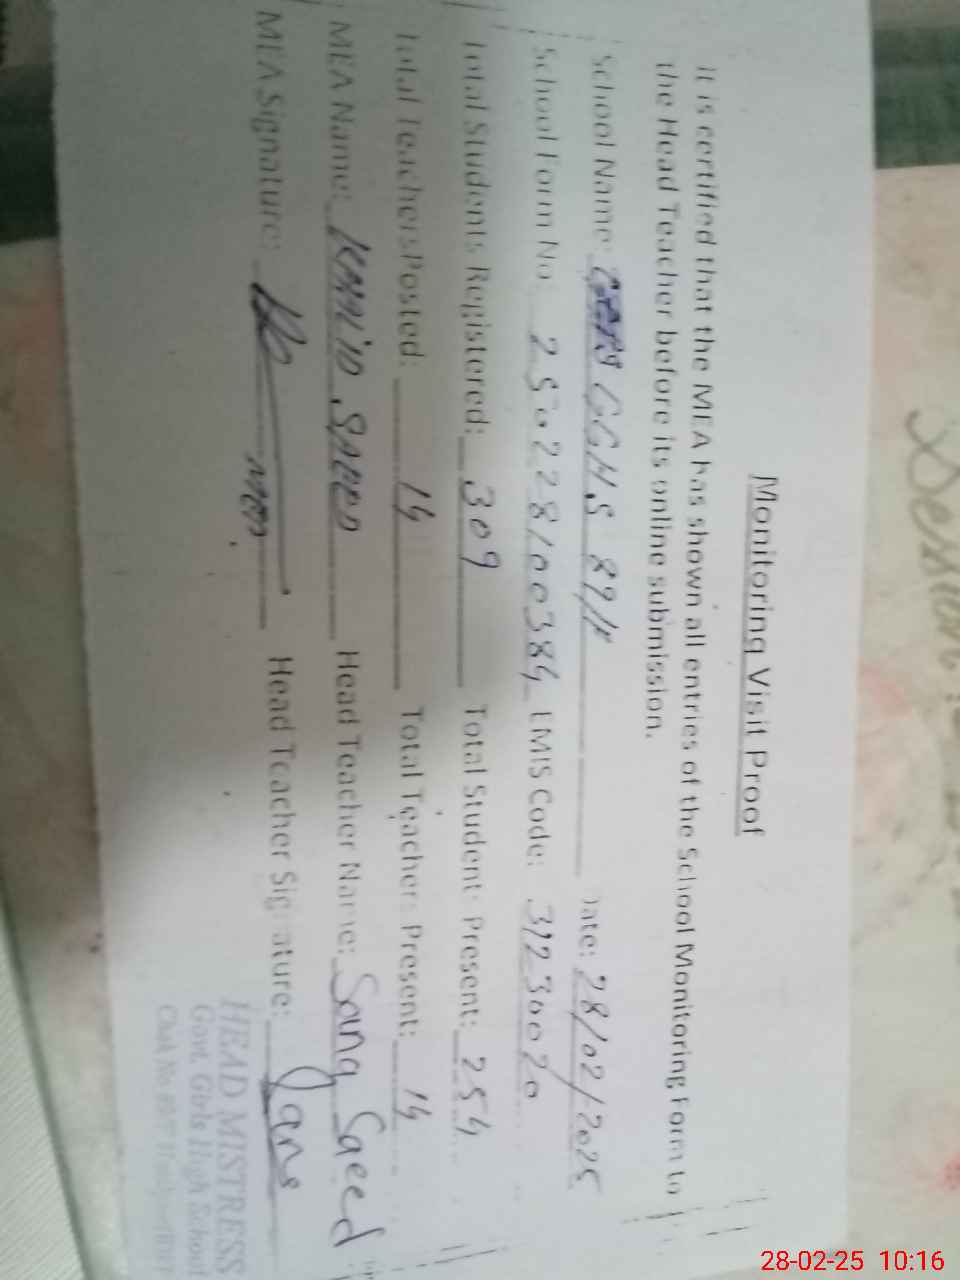 Monitoring Visit Proof
It is certified that the MEA has shown all entries of the School Monitoring Form to
the Head Teacher before its online submission.
School Name: GGHS 89/ Date: 28/02/2025
School Form No 250228100384 EMIS Code: 31230020
Total Students Registered: 309 Total Students Present: 254
Total Teachers Posted: 14 Total Teachers Present: 14
MEA Name: KHALID SAEED Head Teacher Name: Sana Saeed
MEA Signature: Head Teacher Signature:
HEAD MISTRESS
Govt. Girls High School
Chak No
Session
28-02-25 10:16